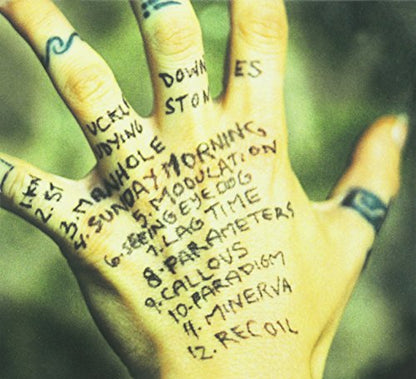 1. KN UCKLE DOWN
2. ST UDYING STON ES
3. MANHOLE
4. SUNDAY MORNING
5. MODULATION
6. SEEING EYE DOG
7. LAG TIME
8. PARAMETERS
9. CALLOUS
10. PARADIGM
11. MINERVA
12. RECOIL